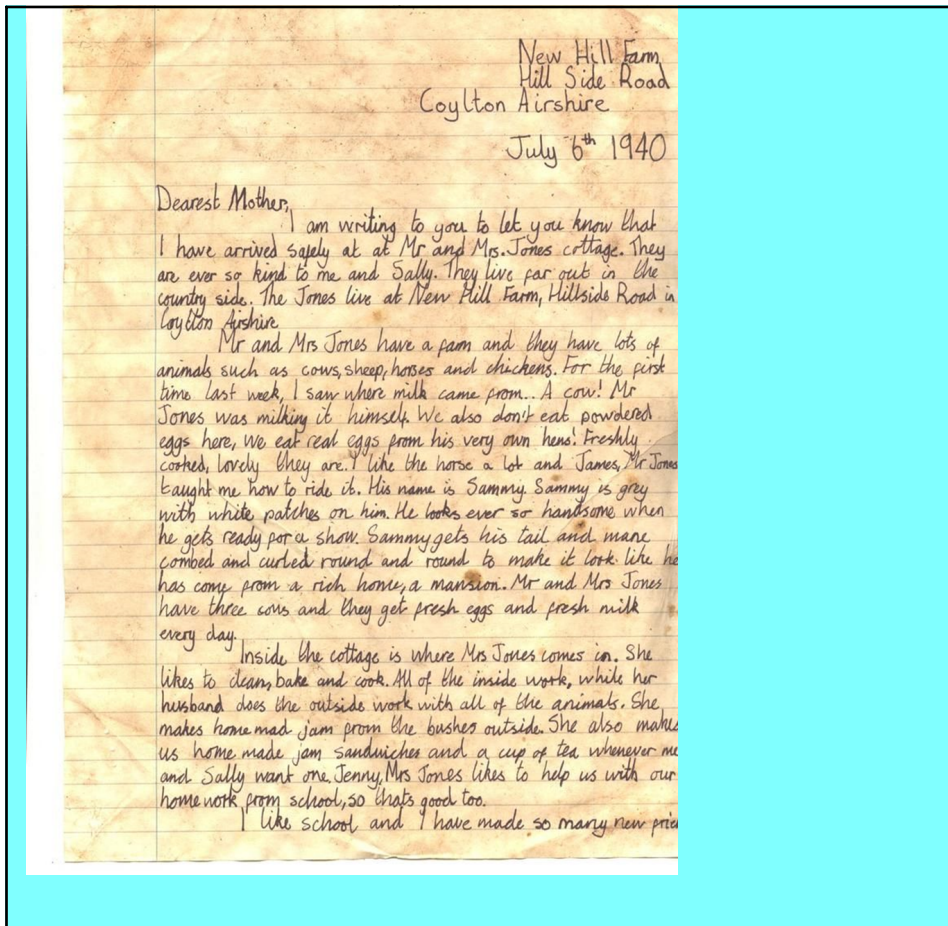 New Hill Farm
Hill Side Road
Coylton Airshire
July 6th 1940
Dearest Mother,
I am writing to you to let you know that
I have arrived safely at at Mr and Mrs. Jones cottage. They
are ever so kind to me and Sally. They live far out in the
country side. The Jones live at New Hill Farm, Hillside Road in
Coylton Airshire
Mr and Mrs Jones have a farm and they have lots of
animals such as cows, sheep, horses and chickens. For the first
time last week, I saw where milk came from.. A cow! Mr
Jones was milking it himself. We also don't eat powdered
eggs here, we eat real eggs from his very own hens! Freshly
cooked, lovely they are. I like the horse a lot and James, Mr Jones
taught me how to ride it. His name is Sammy. Sammy is grey
with white patches on him. He looks ever so handsome when
he gets ready for a show. Sammy gets his tail and mane
combed and curled round and round to make it look like he
has come from a rich home, a mansion. Mr and Mrs Jones
have three cows and they get fresh eggs and fresh milk
every day.
Inside the cottage is where Mrs Jones comes in. She
likes to clean, bake and cook. All of the inside work, while her
husband does the outside work with all of the animals. She
makes home mad jam from the bushes outside. She also makes
us home made jam sandwiches and a cup of tea whenever me
and Sally want one. Jenny, Mrs Jones likes to help us with our
homework from school, so thats good too.
I like school and I have made so many new frie